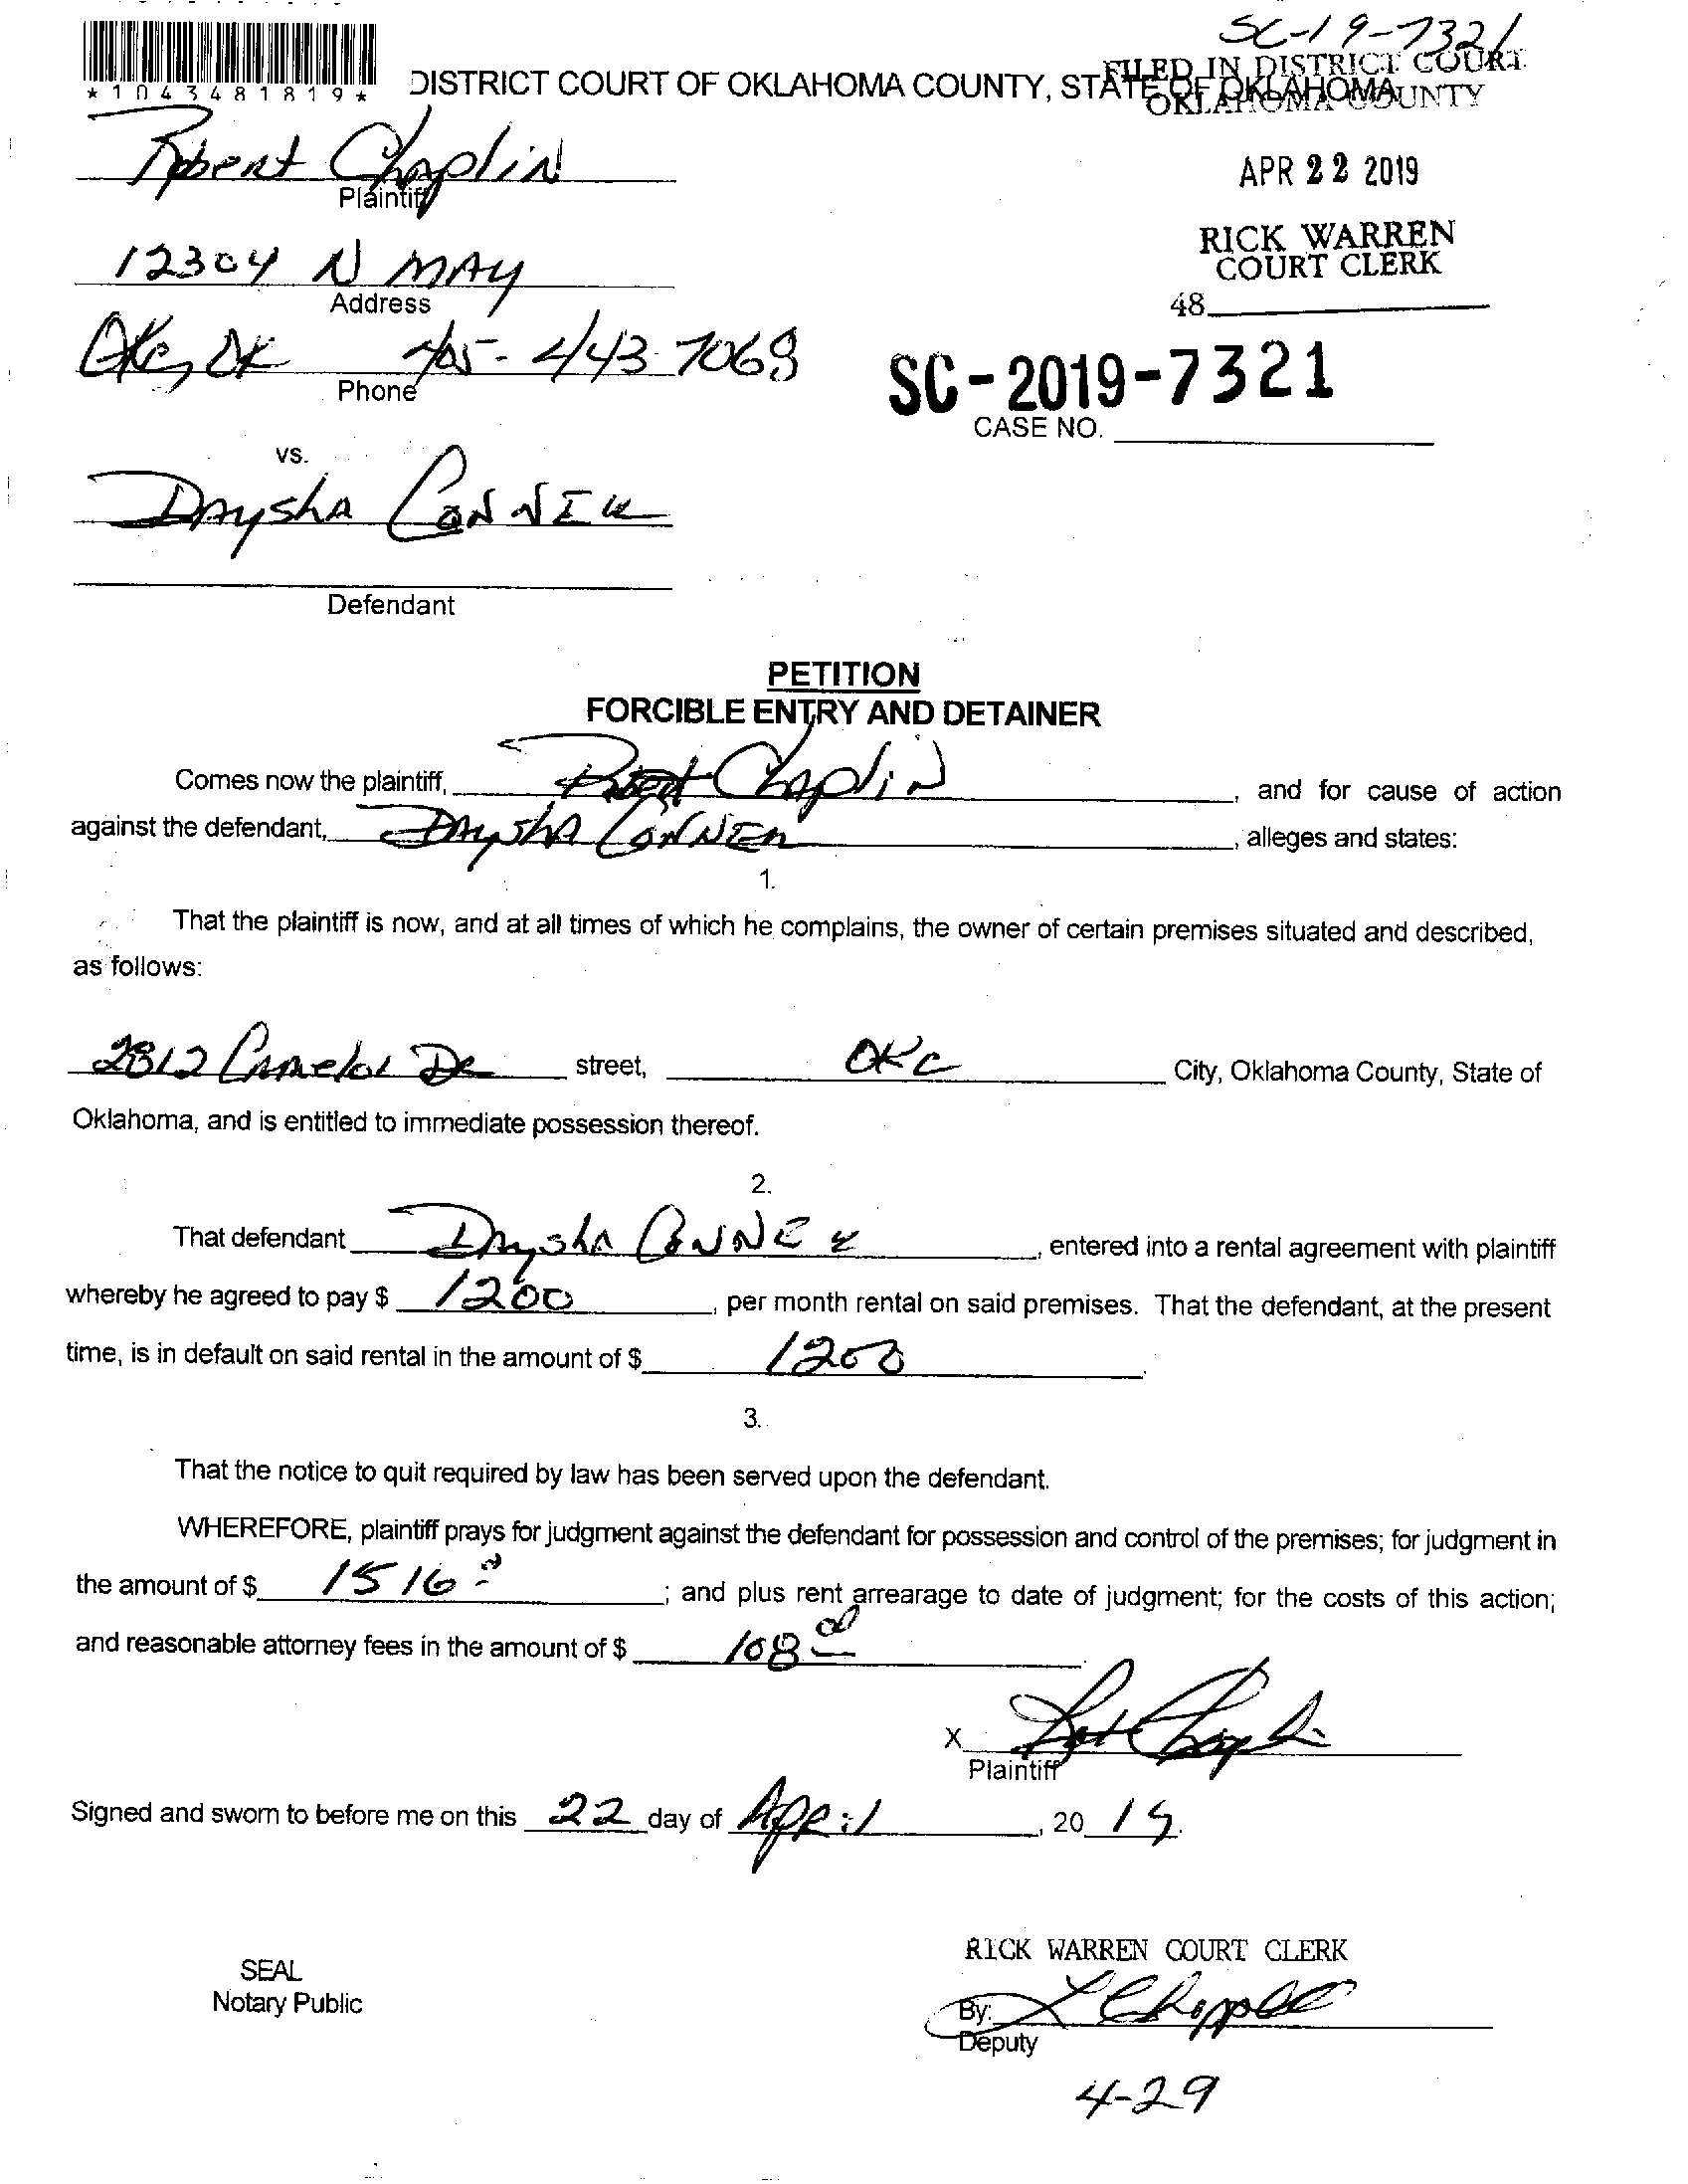 SC-19-7321
*1043481819*
DISTRICT COURT OF OKLAHOMA COUNTY, STATE OF OKLAHOMA
FILED IN DISTRICT COURT
OKLAHOMA COUNTY
Robert Chaplin
Plaintiff
APR 22 2019
RICK WARREN
COURT CLERK
12304 N MAY
Address
48
OKC, OK 405-443-7068
Phone
SC-2019-7321
CASE NO.
vs.
DAYSHA CONNER
Defendant
PETITION
FORCIBLE ENTRY AND DETAINER
Comes now the plaintiff, Robert Chaplin, and for cause of action
against the defendant, DAYSHA CONNER, alleges and states:
1.
That the plaintiff is now, and at all times of which he complains, the owner of certain premises situated and described,
as follows:
2812 Camelot DR street, OKC City, Oklahoma County, State of
Oklahoma, and is entitled to immediate possession thereof.
2.
That defendant DAYSHA CONNER, entered into a rental agreement with plaintiff
whereby he agreed to pay $ 1200, per month rental on said premises. That the defendant, at the present
time, is in default on said rental in the amount of $ 1200.
3.
That the notice to quit required by law has been served upon the defendant.
WHEREFORE, plaintiff prays for judgment against the defendant for possession and control of the premises; for judgment in
the amount of $ 1516; and plus rent arrearage to date of judgment; for the costs of this action;
and reasonable attorney fees in the amount of $ 108 00.
X
Plaintiff
Signed and sworn to before me on this 22 day of April, 20 19.
RICK WARREN COURT CLERK
SEAL
Notary Public
By:
Deputy
4-29